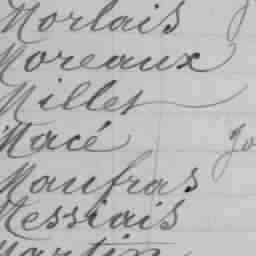 Morlais
Moreaux
Millet
Macé
Maufras
Messiais
Martin